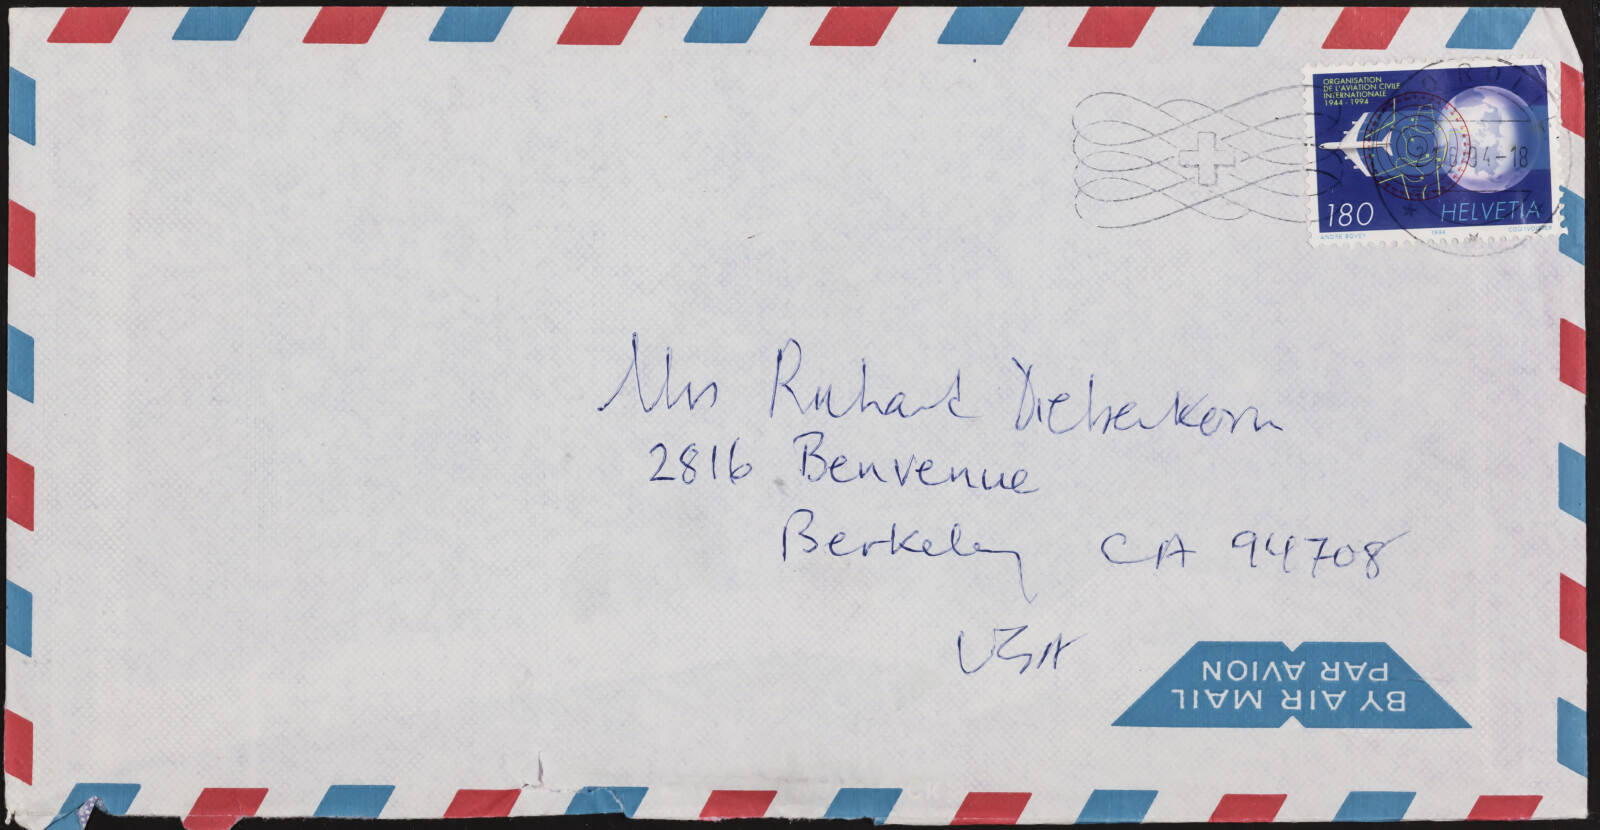 ORGANISATION
DE L'AVIATION CIVILE
INTERNATIONALE
1944 - 1994
180
HELVETIA
ANDRÉ BOVEY
1994
COURVOISIER
94-18
Mrs Richard Diebenkorn
2816 Benvenue
Berkeley CA 94708
USA
BY AIR MAIL
PAR AVION